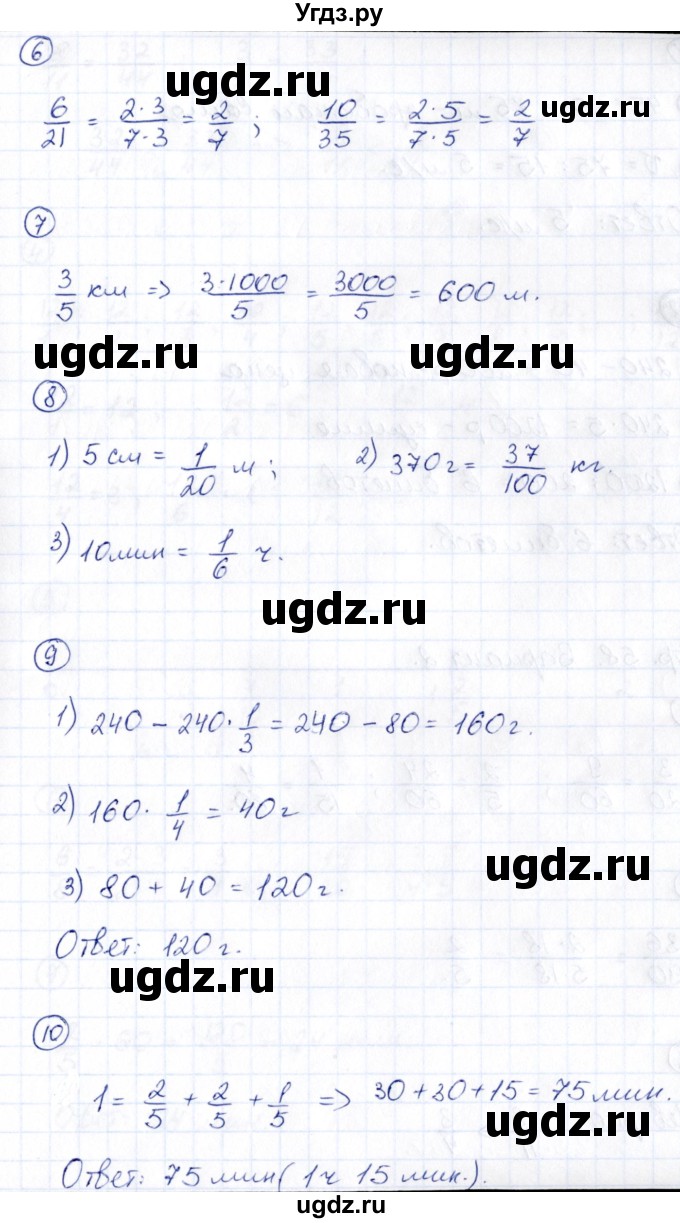 Угдз.ру
6
ugdz.ru
6/21 = 2·3/7·3 = 2/7 ; 10/35 = 2·5/7·5 = 2/7
ugdz.ru
7
3/5 км => 3·1000/5 = 3000/5 = 600 м.
ugdz.ru ugdz.ru
8
1) 5 см = 1/20 м ; 2) 370 г = 37/100 кг.
3) 10 мин = 1/6 ч.
ugdz.ru
9
1) 240 - 240·1/3 = 240 - 80 = 160 г.
2) 160 · 1/4 = 40 г
ugdz.ru
3) 80 + 40 = 120 г.
Ответ: 120 г.
ugdz.ru
10
1 = 2/5 + 2/5 + 1/5 => 30 + 30 + 15 = 75 мин.
ugdz.ru
Ответ: 75 мин (1 ч 15 мин.).
ugdz.ru